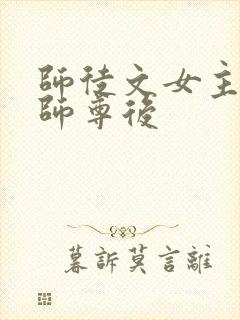 師徒文女主
師尊後
暮訴莫言離